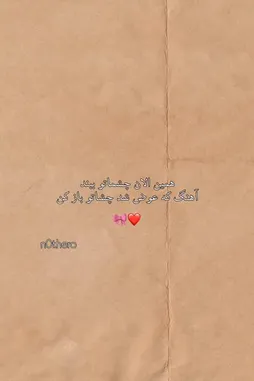 همین الان چشماتو ببند
آهنگ که عوض شد چشاتو باز کن
🎀❤️
n0thero